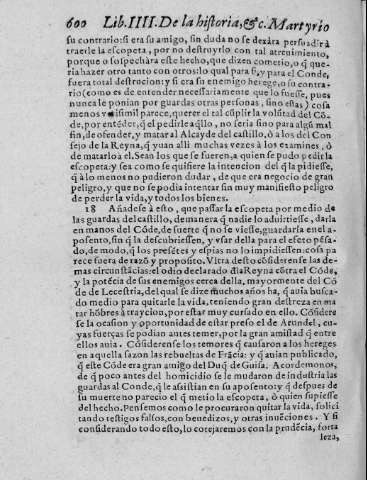 600 Lib. IIII. De la historia, &c. Martyrio
su contrario: si era su amigo, sin duda no se dexàra persuadir à
traerle la escopeta, por no destruyrlo con tal atreuimiento,
porque o sospechàra este hecho, que dizen cometio, o q̃ que-
ria hazer otro tanto con otros: lo qual para si, y para el Conde,
fuera total destruciõ: y si era su enemigo herege, o su contra-
rio (como es de entender necessariamente que lo fuesse, pues
nunca le ponian por guardas otras personas, sino estas) cosa
menos verisimil parece, querer el tal cũplir la volũtad del Cõ-
de, por entẽder, q̃ el pedirle aq̃llo, no seria sino para algũ mal
fin, de ofender, y matar al Alcayde del castillo, ò a los del Con
sejo de la Reyna, q̃ yuan alli muchas vezes à los examines, ò
de matarlo à el. Sean los que se fueren, a quien se pudo pedir la
escopeta: y sea como se quisiere la intencion del q̃ la pidiesse,
q̃ à lo menos no pudieron dudar, de que era negocio de gran
peligro, y que no se podia intentar sin muy manifiesto peligro
de perder la vida, y todos los bienes.
18 Añadese à esto, que passar la escopeta por medio de
las guardas del castillo, de manera q̃ nadie lo aduirtiesse, darla
en manos del Cõde, de suerte q̃ no le viesse, guardarla en el a-
posento, sin q̃ la descubriessen, y vsar della para el efeto pẽsa-
do, de modo, q̃ los presẽtes y espias no lo impidiessen: cosa pa
rece fuera de razõ y proposito. Vltra desto cõsiderense las de-
mas circunstãcias: el odio declarado d̃la Reyna cõtra el Cõde,
y la potẽcia de sus enemigos cerca della, mayormente del Cõ
de de Lecestria, del qual se dize muchos años ha, q̃ auia busca-
do medio para quitarle la vida, teniendo gran destreza en ma
tar hõbres à traycion, por estar muy cursado en ello. Cõsidere
se la ocasion y oportunidad de estar preso el de Arundel, cu-
yas fuerças se podian antes temer, por la gran amistad q̃ entre
ellos auia. Cõsiderense los temores q̃ causaron a los hereges
en aquella sazon las rebueltas de Frãcia: y q̃ auian publicado,
q̃ este Cõde era gran amigo del Duq̃ de Guisa. Acordemonos,
de q̃ poco antes del homicidio se le mudaron de industria las
guardas al Conde, q̃ le assistian en su aposento: y q̃ despues de
su muerte no parecio el q̃ metio la escopeta, ò quien supiesse
del hecho. Pensemos como le procuraron quitar la vida, solici
tando testigos falsos, con benedizos, y otras inuẽciones. Y si
considerando todo esto, lo cotejaremos con la prudẽcia, forta
leza,